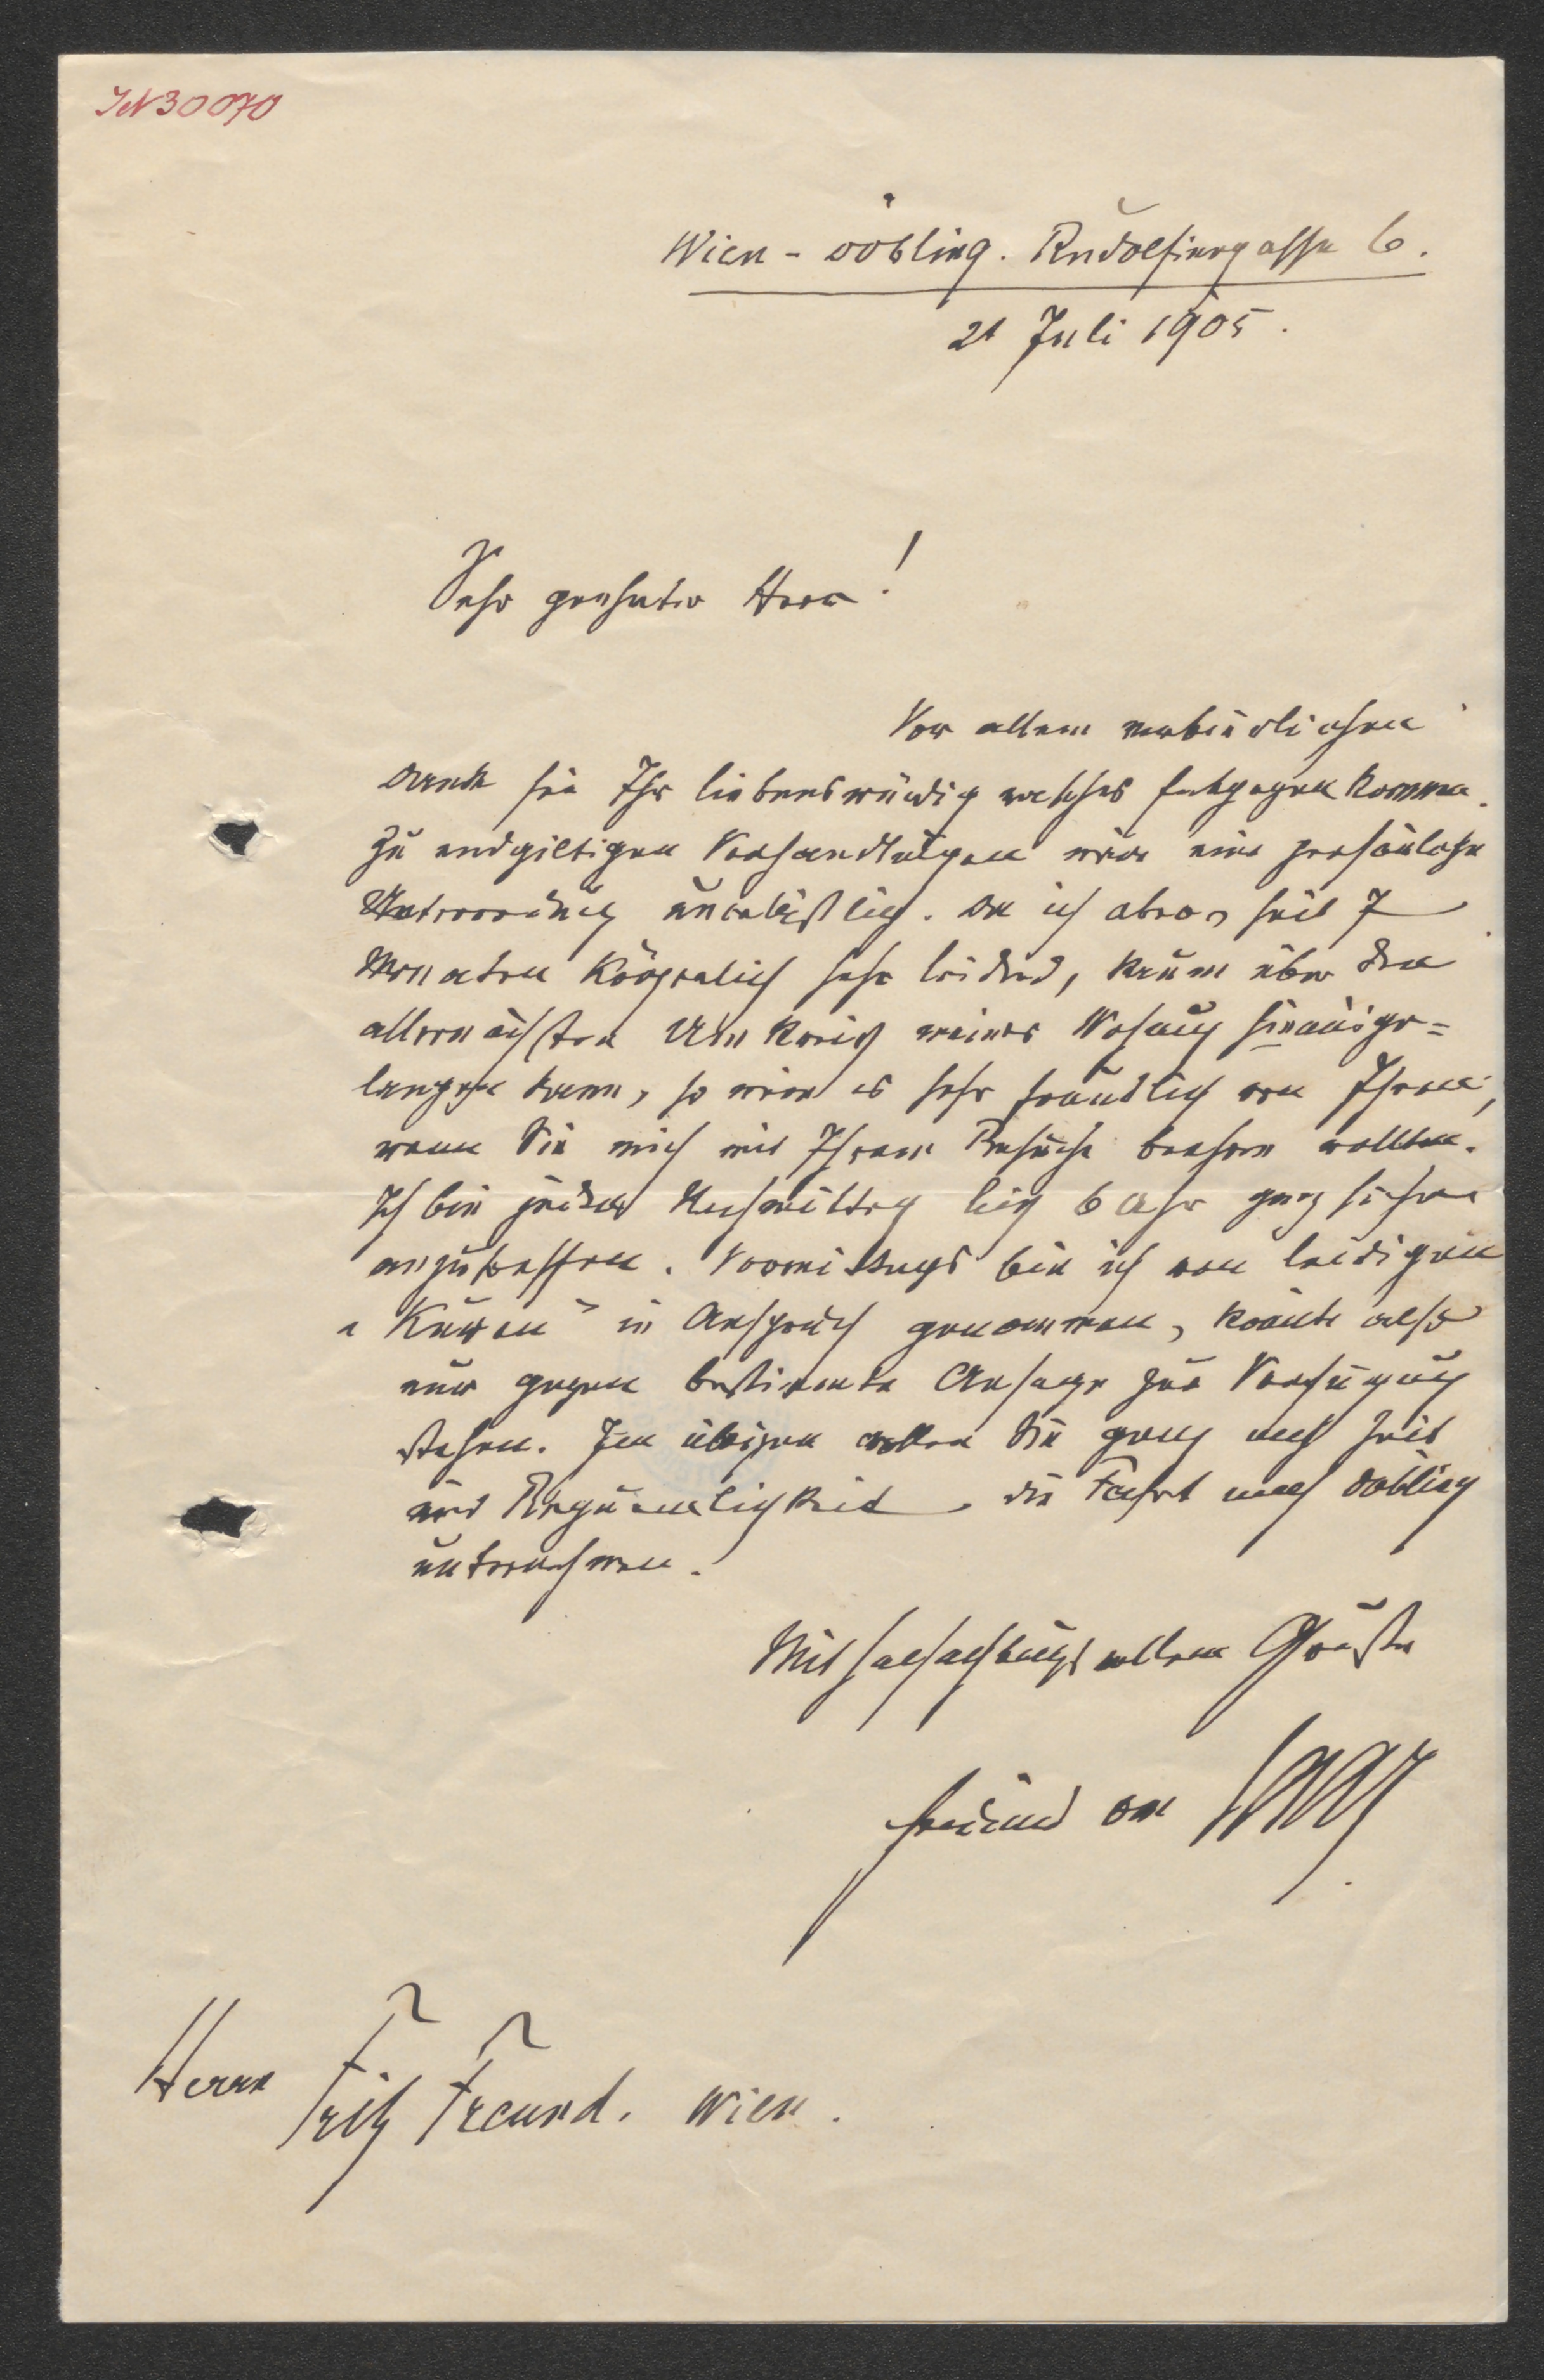 IN 30070
Wien - Döbling. Rudolfinergasse 6.
21 Juli 1905.
Sehr geehrter Herr!
Vor allem verbindlichsten
Dank für Ihr liebenswürdig rasches Entgegenkommen.
Zu endgiltigen Verhandlungen wäre eine persönliche
Unterredung unerläßlich. Da ich aber seit 7
Monaten körperlich sehr leidend, kaum über den
allernächsten Umkreis meiner Wohnung hinausge=
langen kann, so wäre es sehr freundlich von Ihnen,
wenn Sie mich mit Ihrem Besuche beehren wollten.
Ich bin jeden Nachmittag bis 6 Uhr ganz sicher
anzutreffen. Vormittags bin ich von leidigen
„Kuren" in Anspruch genommen, könnte also
nur gegen bestimmte Ansage zur Verfügung
stehen. Im übrigen wollen Sie ganz nach Zeit
und Bequemlichkeit die Fahrt nach Döbling
unternehmen.
Mit hochachtungsvollem Gruße
Ferdinand von Saar.
Herrn Fritz Freund. Wien.